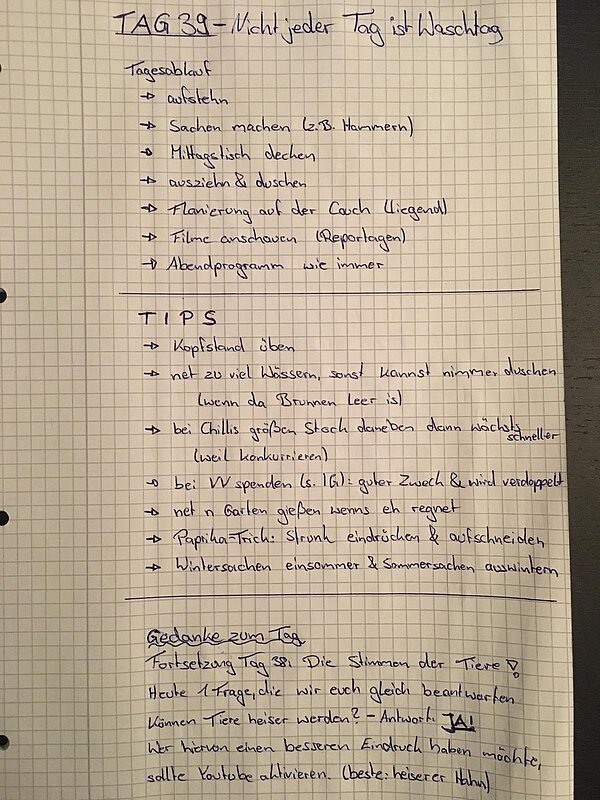 TAG 39 - Nicht jeder Tag ist Waschtag
Tagesablauf
→ aufstehn
→ Sachen machen (z.B. Hammern)
→ Mittagstisch decken
→ ausziehn & duschen
→ Flanierung auf der Couch (liegend)
→ Filme anschauen (Reportagen)
→ Abendprogramm wie immer
TIPS
→ Kopfstand üben
→ net zu viel Wässern, sonst kannst nimmer duschen
(wenn da Brunnen leer is)
→ bei Chillis größen Stock daneben dann wächsts
schneller
(weil konkurrieren)
→ bei VV spenden (s. IG): guter Zweck & wird verdoppelt
→ net n Garten gießen wenns eh regnet
→ Paprika-Trick: Strunk eindrücken & aufschneiden
→ Wintersachen einsommer & Sommersachen auswintern
Gedanke zum Tag
Fortsetzung Tag 38: Die Stimmen der Tiere!
Heute 1 Frage, die wir euch gleich beantworten
Können Tiere heiser werden? - Antwort: JA!
Wer hiervon einen besseren Eindruck haben möchte,
sollte Youtube aktivieren. (beste: heiserer Hahn)